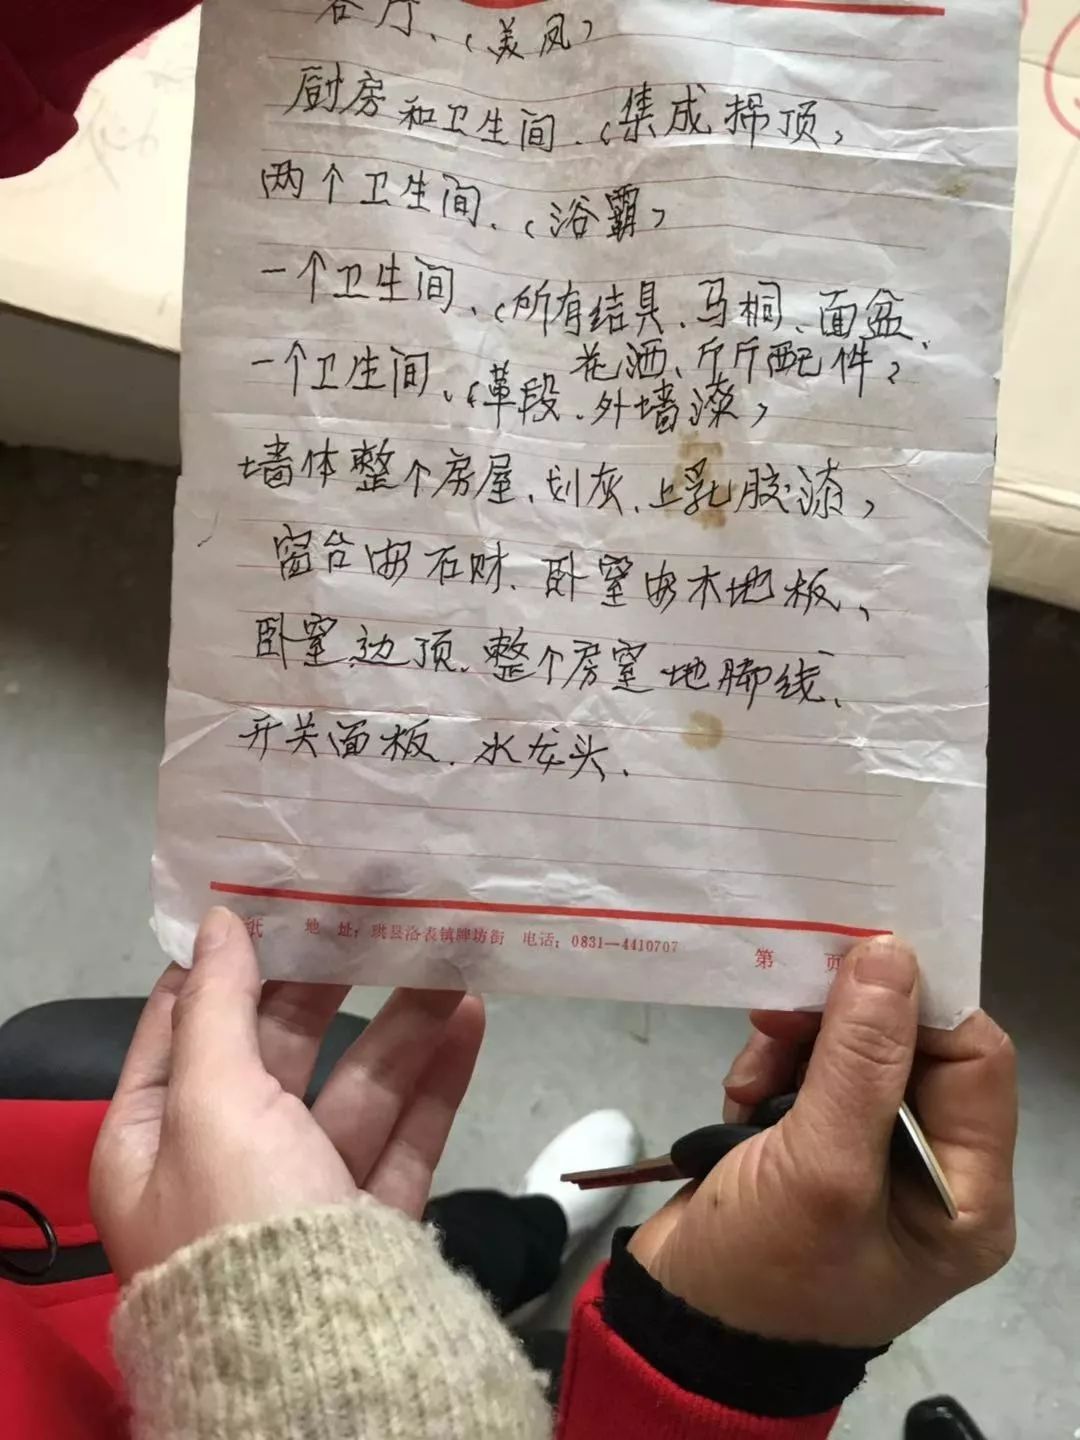 客厅、(美凤)
厨房和卫生间、(集成吊顶)
两个卫生间、(浴霸)
一个卫生间、(所有结具、马桐、面盆、
花洒、斤斤配件)
一个卫生间、(革段、外墙漆)
墙体整个房屋、划灰、上乳胶漆,
窗台安石财、卧室安木地板、
卧室边顶、整个房室地脚线、
开关面板、水龙头、
纸 地 址:珙县洛表镇牌坊街 电话:0831—4410707 第 页